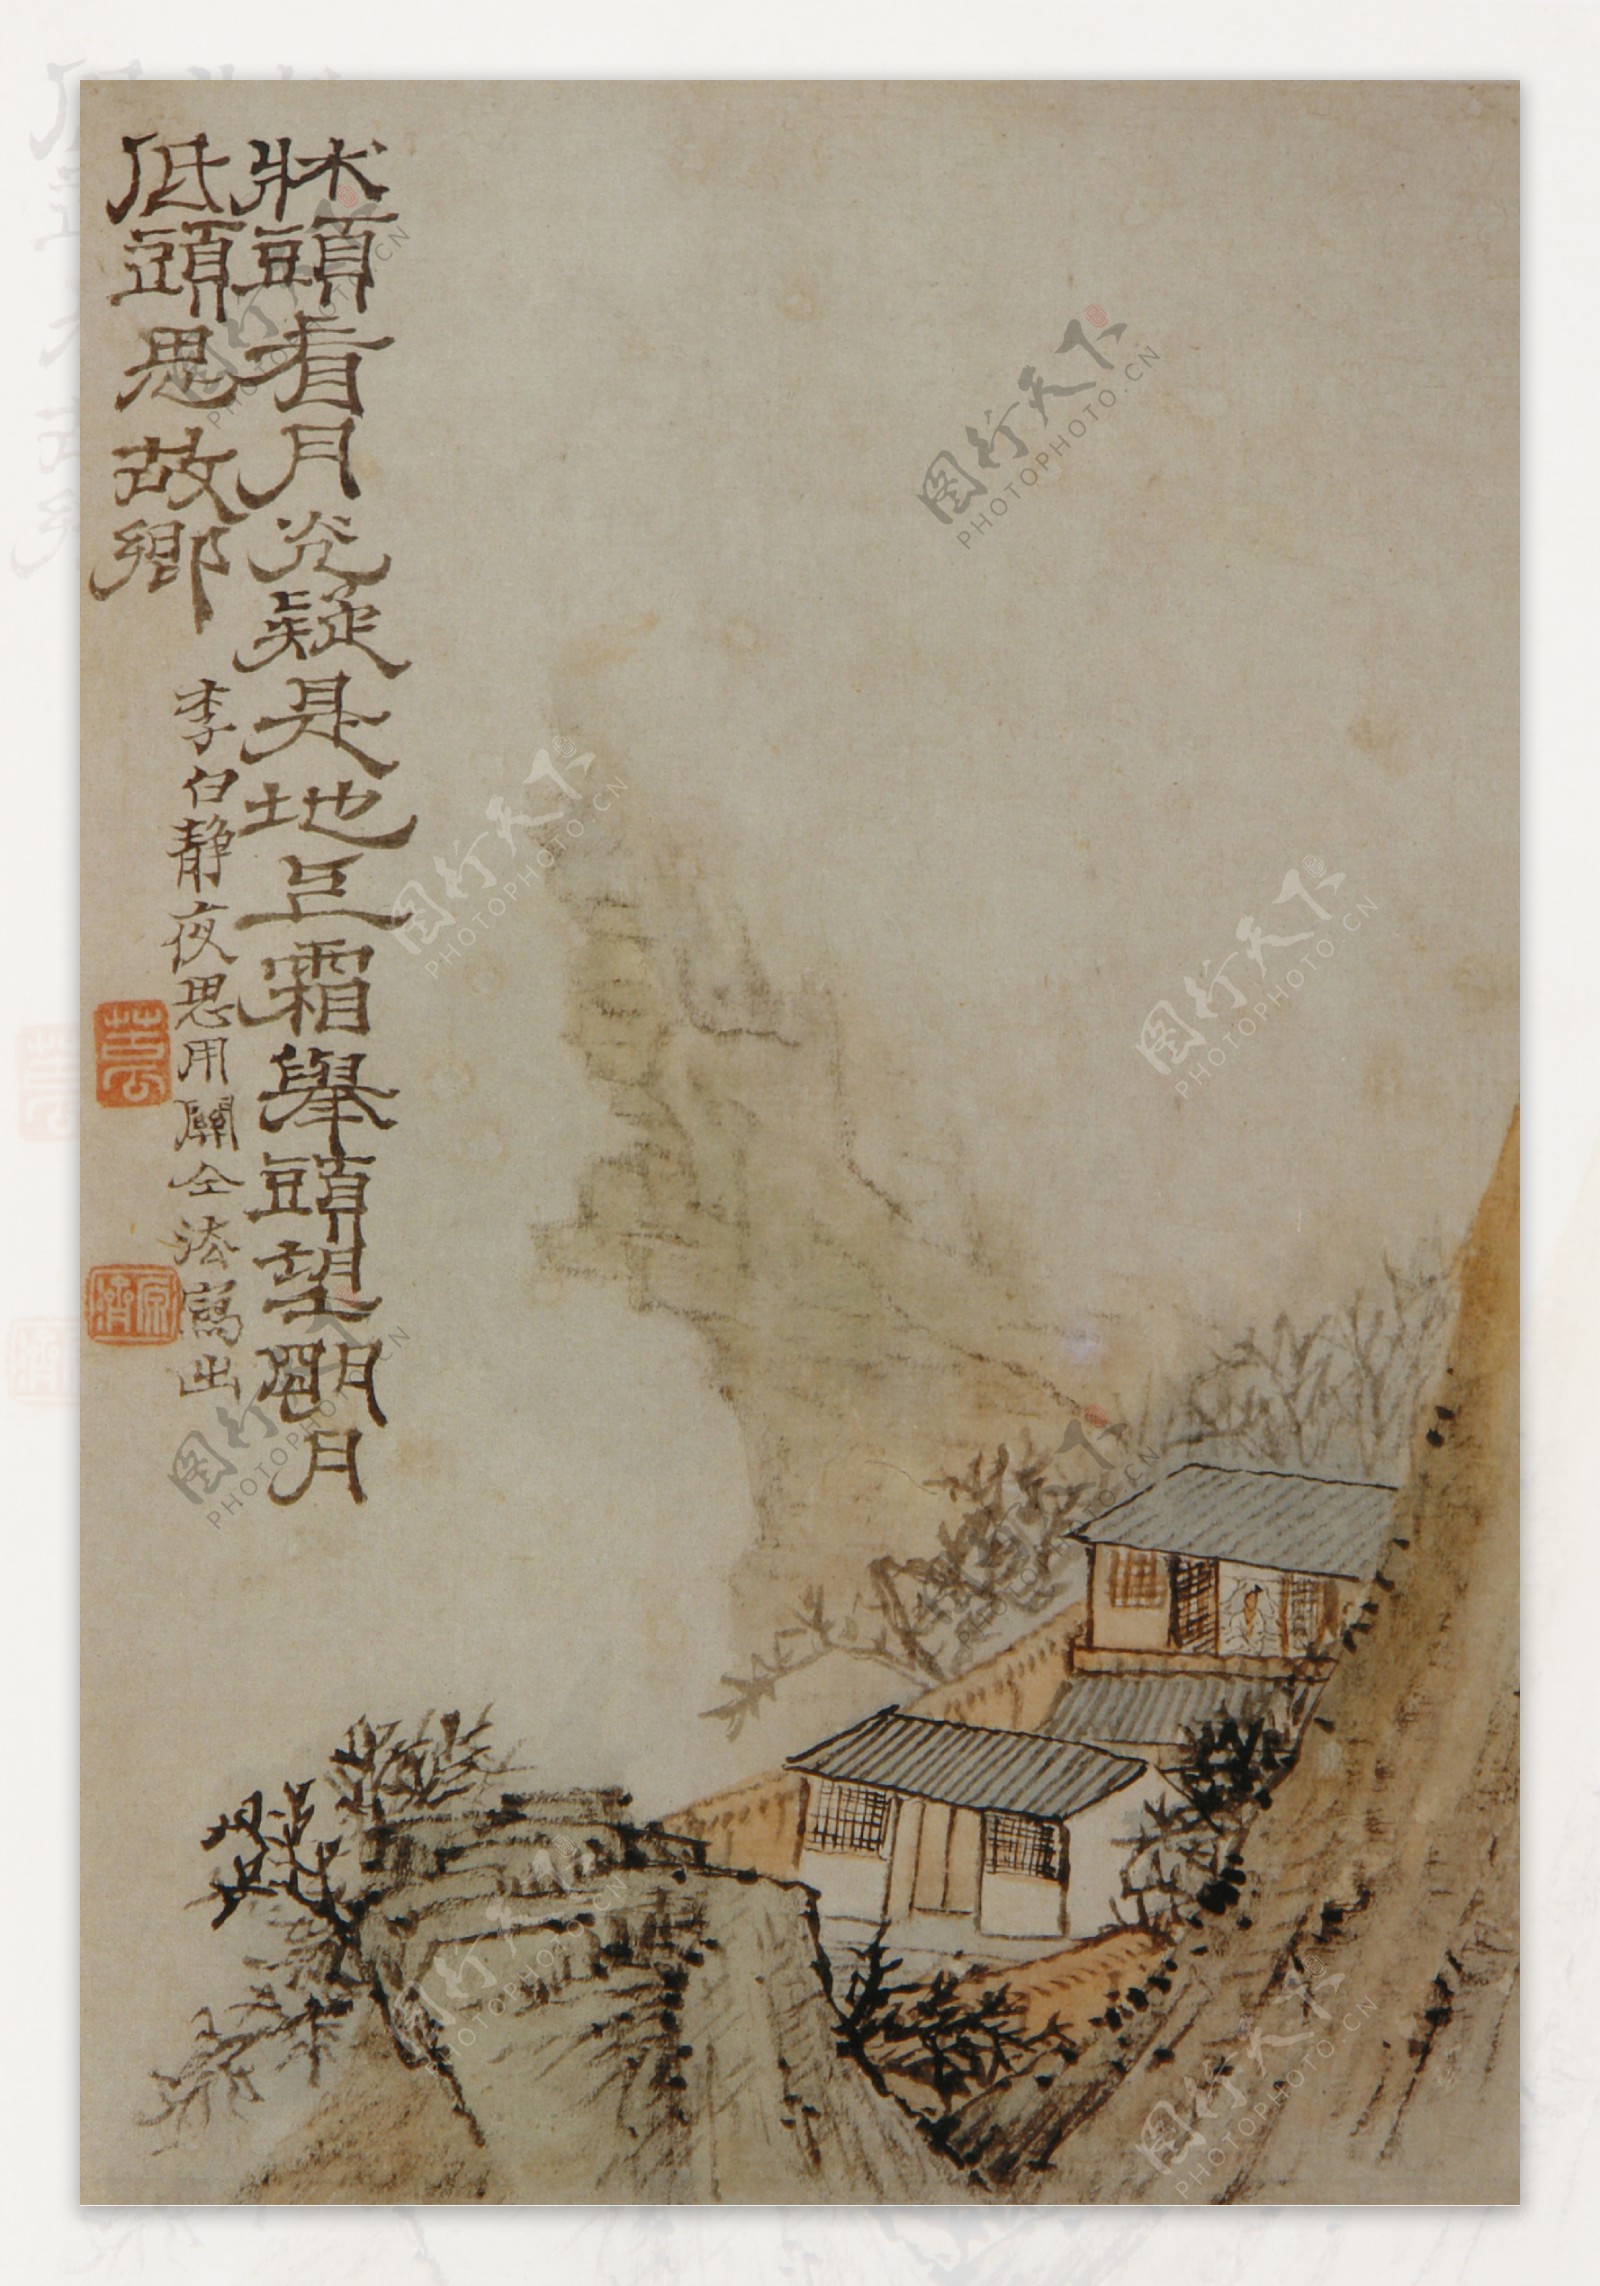 牀頭看月光疑是地上霜舉頭望朙月
低頭思故鄉
李白靜夜思用關仝法寫出
苦瓜
原濟
图行天下
PHOTOPHOTO.CN